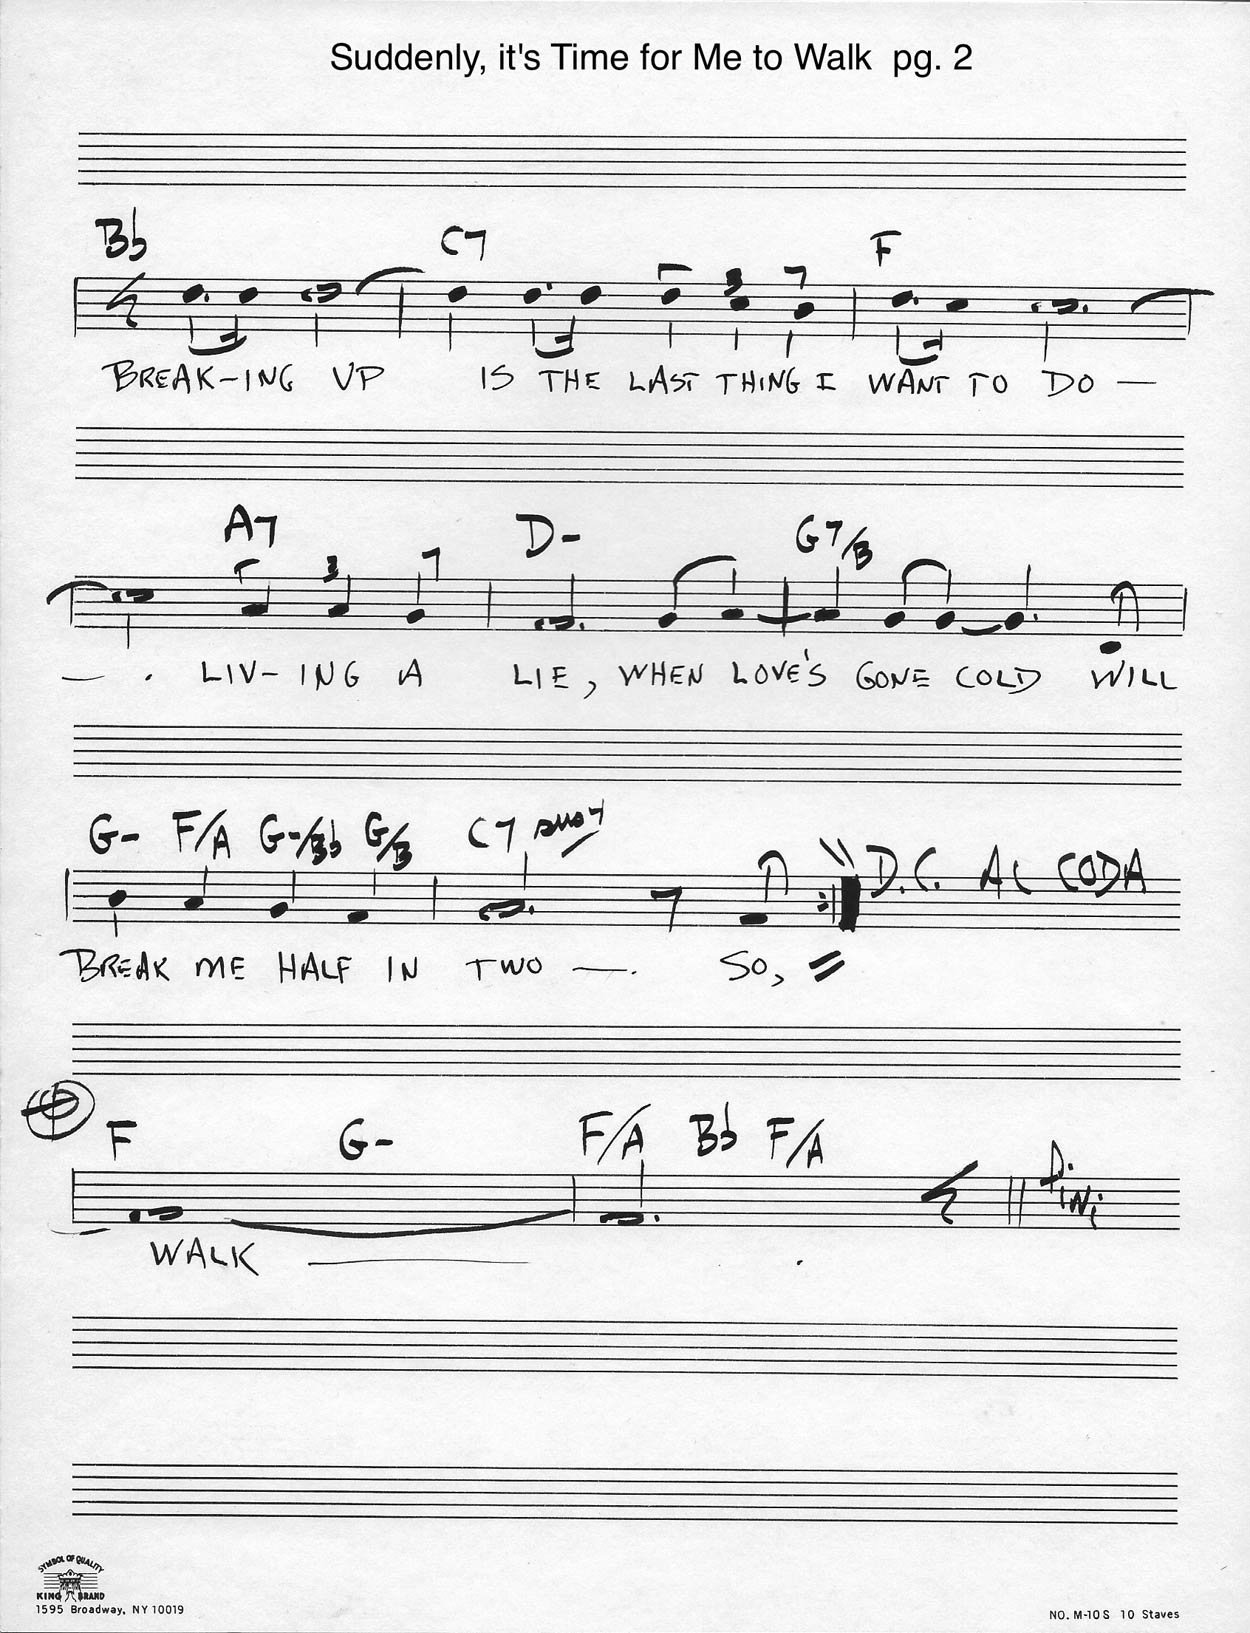 Suddenly, it's Time for Me to Walk pg. 2
Bb C7 F
3
BREAK-ING UP IS THE LAST THING I WANT TO DO —
A7 D- G7/B
3
— . LIV-ING A LIE, WHEN LOVE'S GONE COLD WILL
G- F/A G-/Bb G/B C7 sus7
D.C. AL CODA
BREAK ME HALF IN TWO —. SO,
F G- F/A Bb F/A
Fini
WALK ——— .
SYMBOL OF QUALITY
KING BRAND
1595 Broadway, NY 10019
NO. M-10S 10 Staves